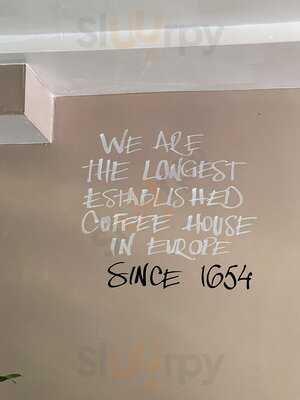 sluurpy
WE ARE
THE LONGEST
ESTABLISHED
COFFEE HOUSE
IN EUROPE
SINCE 1654
sluurpy